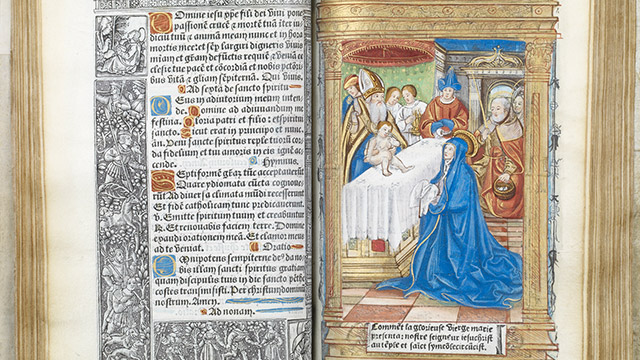 Omine iesu xpe fili dei vivi pone
passionē crucē ⁊ mortē tuā iter iu
diciū tuū ⁊ aīmā meam nunc et in hora
mortis mee et per largiri digneris vivis
miam et gram defūctis requiē ⁊ veniā ec
clesie tue pacē et cōcordiā et nobis pctōri
bus vitā ⁊ gliam sēpiternā. Qui vivis.
Ad sexta de sancto spiritu
Eus in adiutorium meum inten
de. Domine ad adiuvandum me
festina. Gloria patri et filio et spiritui
sancto. Sicut erat in principio et nunc
Veni sancte spiritus reple tuorū corda
fidelium et tui amoris in eis ignē ac
cende. Hymnus.
Septiformē grām tūc acceperunt
Quare ydiomata cūcta cognove
runt Ad diversa climata mūdi recesserunt
Et fidē catholicam tunc predicaverunt
℣. Emitte spiritum tuum et creabuntur
℟. Et renovabis faciem terre. Domine
exaudi orationem meā. Et clamor meus
ad te veniat. Oratio
Omnipotens sempiterne de9 da no
bis illam sancti spiritus gratiam
quam discipulis tuis in die sancto pēthe
costes transmisisti. Per christum dominū
nostrum. Amen.
Ad nonam.
Commēt la glorieuse vierge marie
presenta nostre seigneur iesuchrist
au tēple et saīct symeō le receut